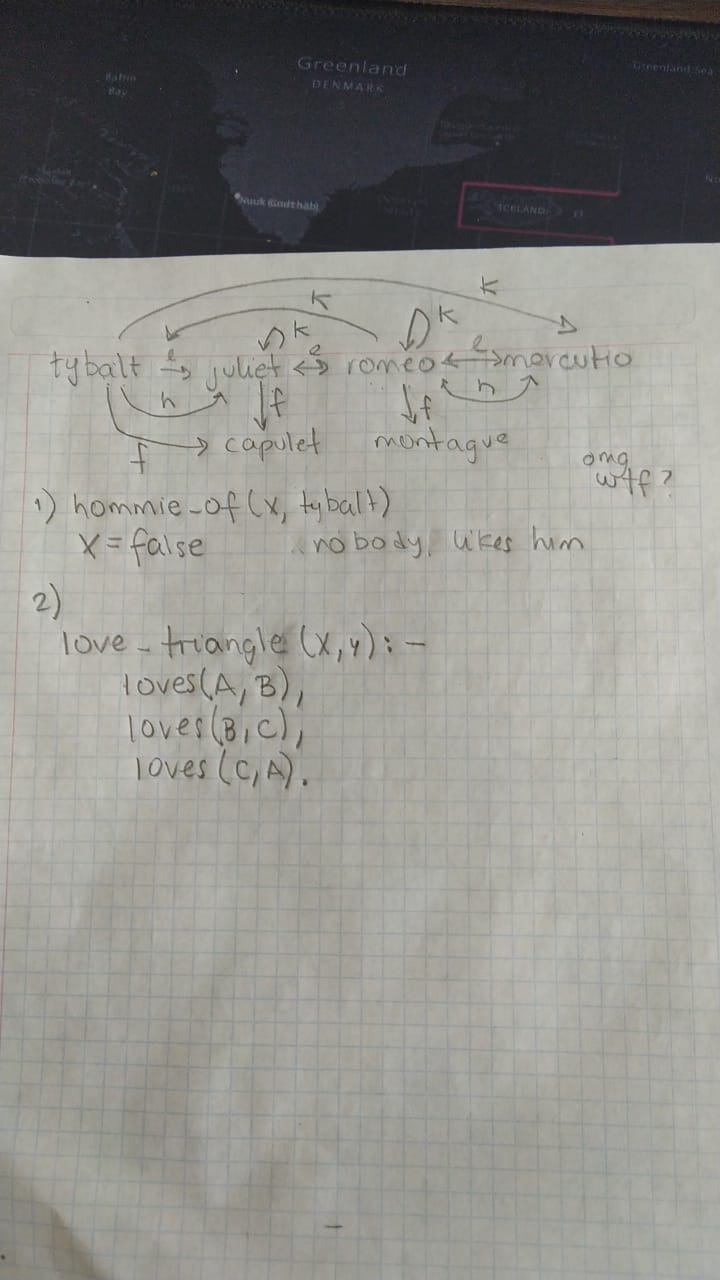 Greenland
Greenland Sea
DENMARK
Baffin
Bay
Nuuk (Godthåb)
ICELAND
K
K
K
K
tybalt e juliet e romeo e mercutio
h
f
f
h
f
capulet montague
omg
wtf?
1) hommie-of(X, tybalt)
X = false nobody likes him
2)
love-triangle(X,y):-
loves(A, B),
loves(B,C),
loves(C,A).